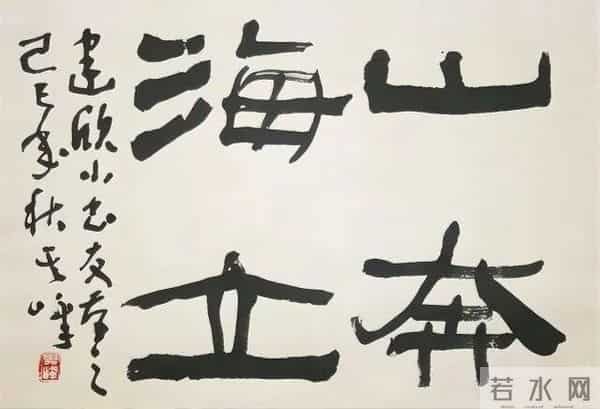 山奔
海立
建欣小忠友之
己巳年秋其峰
若水网